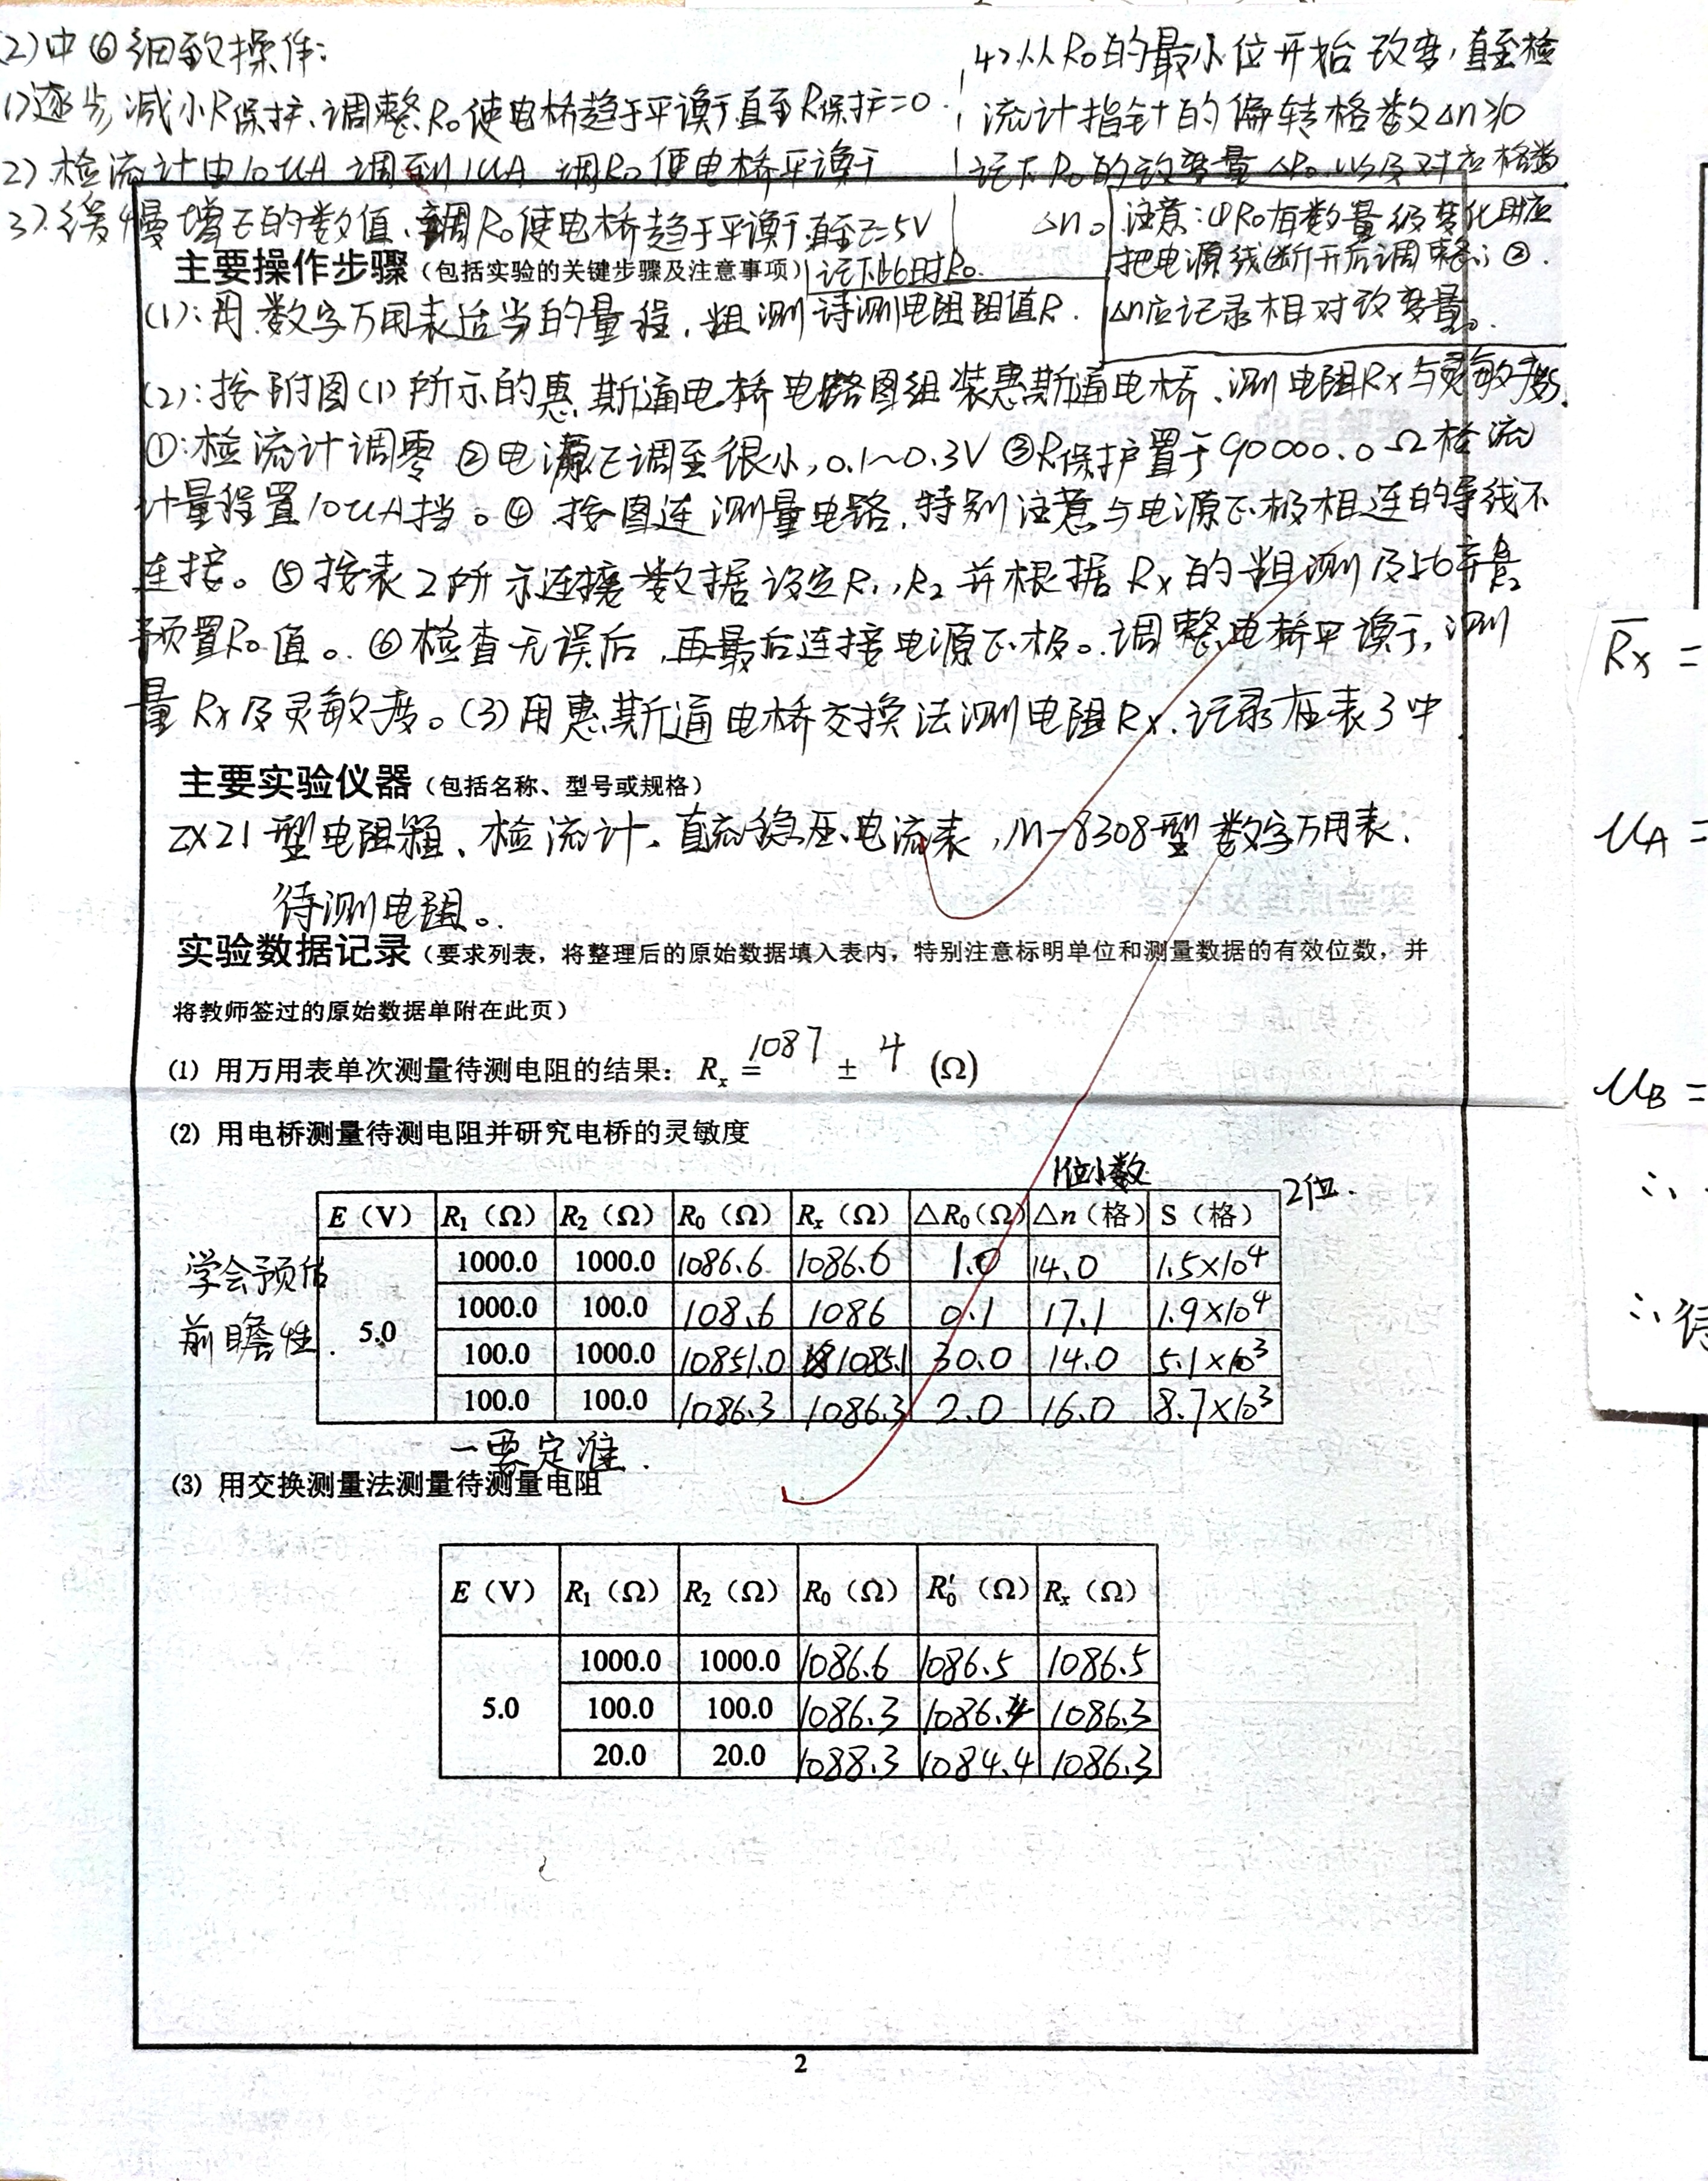 2)中⑥细致操作:
1)逐步减小R保护、调整R₀使电桥趋于平衡直至R保护=0.
2)检流计由10uA调到1uA 调R₀使电桥平衡
3)缓慢增E的数值、调R₀使电桥趋于平衡.直至E=5V
记下此时R₀.
4)从R₀的最小位开始改变,直至检
流计指针的偏转格数Δn≥10
记下R₀的改变量ΔR₀以及对应格数
Δn。
注意:①R₀有数量级变化时应
把电源线断开后调整;②.
Δn应记录相对改变量。
主要操作步骤(包括实验的关键步骤及注意事项)
(1):用数字万用表适当的量程,粗测待测电阻阻值R.
(2):按附图(1)所示的惠斯通电桥电路图组装惠斯通电桥.测电阻Rx与灵敏度.
①:检流计调零 ②电源E调至很小,0.1~0.3V ③R保护置于90000.0Ω检流
计量程置10uA挡。④按图连测量电路,特别注意与电源正极相连的导线不
连接。⑤按表2所示连接数据设定R₁,R₂并根据Rx的粗测及比率R₁/R₂
预置R₀值。⑥检查无误后,再最后连接电源正极。调整电桥平衡,测
量Rx及灵敏度。(3)用惠斯通电桥交换法测电阻Rx.记录在表3中
主要实验仪器(包括名称、型号或规格)
ZX21型电阻箱、检流计、直流稳压电流表,M-8308型数字万用表.
待测电阻。
实验数据记录(要求列表,将整理后的原始数据填入表内,特别注意标明单位和测量数据的有效位数,并
将教师签过的原始数据单附在此页)
(1) 用万用表单次测量待测电阻的结果: Rₓ = 1087 ± 4 (Ω)
(2) 用电桥测量待测电阻并研究电桥的灵敏度
1位小数
2位.
E(V) R₁(Ω) R₂(Ω) R₀(Ω) Rₓ(Ω) △R₀(Ω) △n(格) S(格)
1000.0 1000.0 1086.6 1086.6 1.0 14.0 1.5×10⁴
学会预估
1000.0 100.0 108.6 1086 0.1 17.1 1.9×10⁴
前瞻性.
5.0
100.0 1000.0 10851.0 1085.1 30.0 14.0 5.1×10³
100.0 100.0 1086.3 1086.3 2.0 16.0 8.7×10³
一要定准.
(3) 用交换测量法测量待测量电阻
E(V) R₁(Ω) R₂(Ω) R₀(Ω) R₀′(Ω) Rₓ(Ω)
1000.0 1000.0 1086.6 1086.5 1086.5
5.0 100.0 100.0 1086.3 1086.4 1086.3
20.0 20.0 1088.3 1084.4 1086.3
2
R̄x =
uA =
uB =
∴
∴待